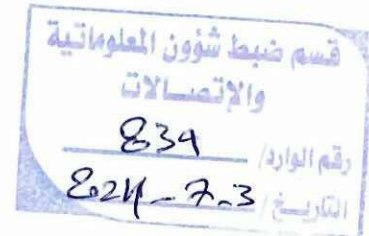 قسم ضبط شؤون المعلوماتية
والإتصالات
رقم الوارد/ 834
التاريخ/ 2024-7-3